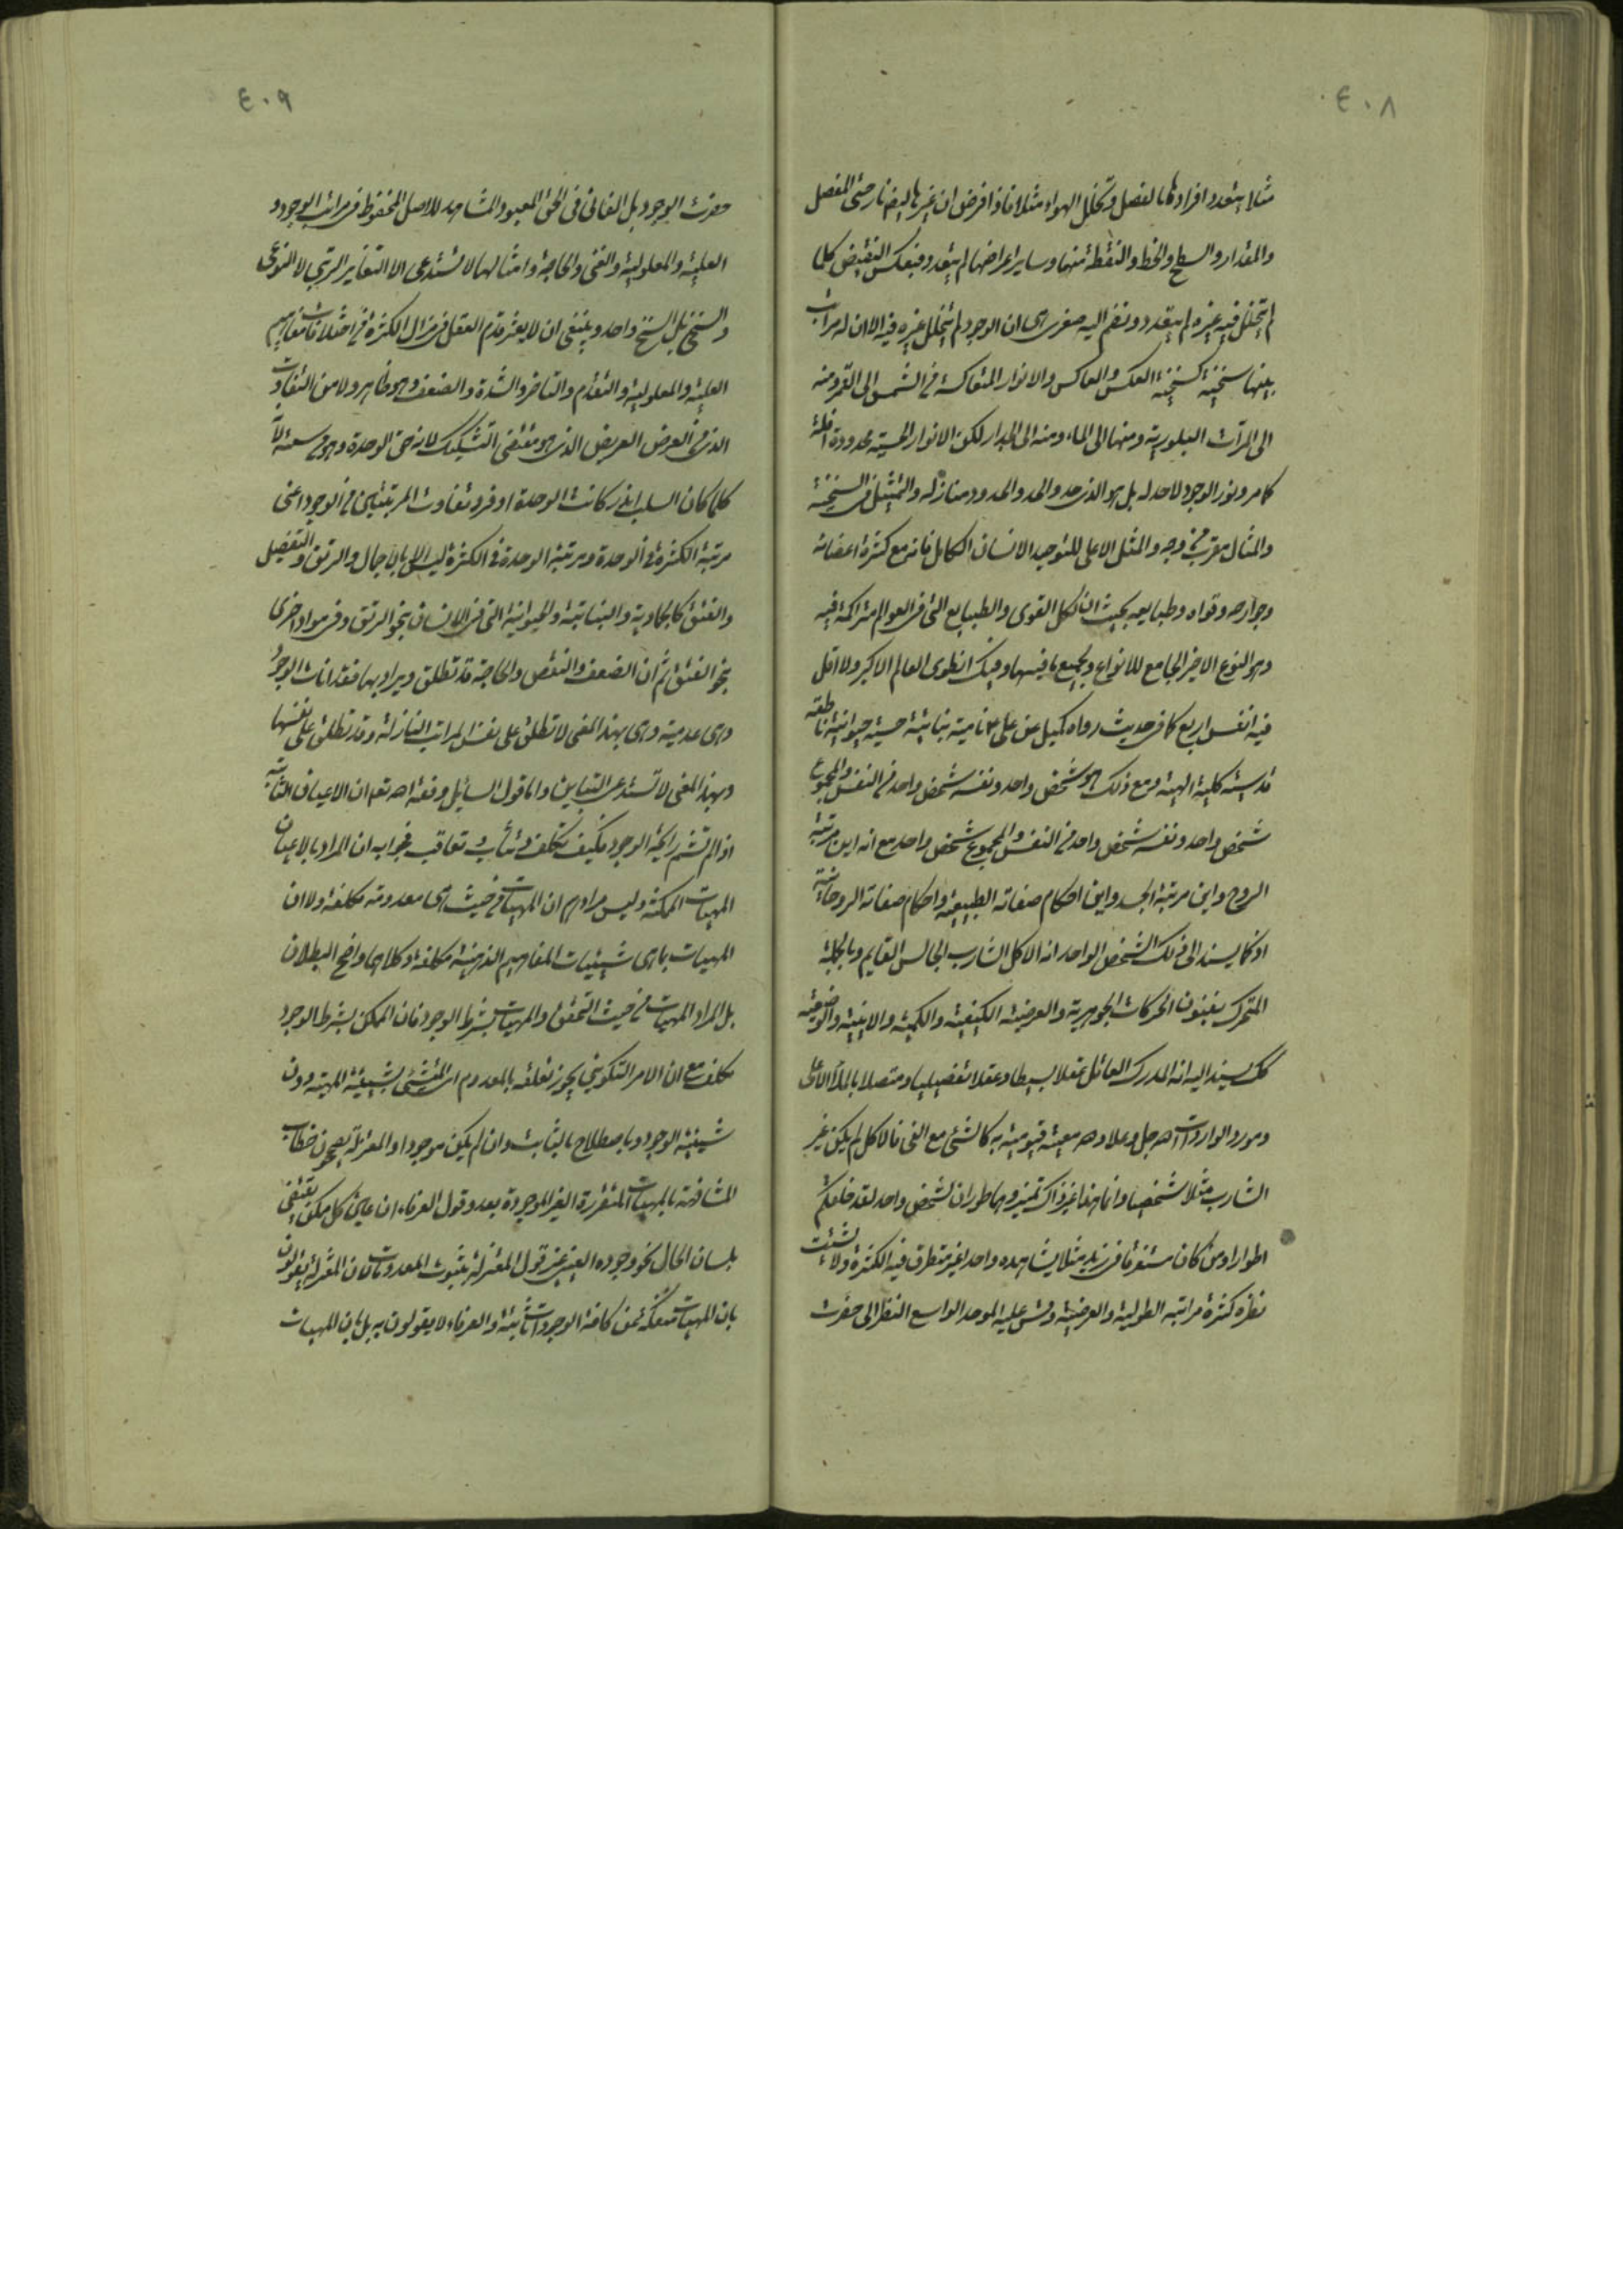 ٤٠٨
مثلا يتعدد افرادها بالفصل وتخلل الهواء مثلا فاذا فرض ان غيرها ايضا نار حتى الفصل
والمقدار والسطح والخط والنقطة منها وساير اعراضها لم يتعدد فبعكس النقيض كلما
لم يتخلل فيه غيره لم يتعدد ونضم اليه صغرى هى ان الوجود لم يتخلل غيره فيه الا ان له مراتب
بينها سنخية كسنخية العكس والعاكس والانوار المتعاكسة من الشمس الى القمر ومنه
الى المرآت البلورية ومنها الى الماء ومنه الى الجدار لكن الانوار الحسية محدودة آفلة
كما مر ونور الوجود لا حد له بل هو الذى حد والحد والمحدود منازله والتمثيل فى السنخية
والمثال مقرب من وجه والمثل الاعلى للتوحيد الانسان الكامل فانه مع كثرة اعضائه
وجوارحه وقواه وطبايعه بحيث ان كل القوى والطبايع التى فى العوالم متراكمة فيه
وهو النوع الاخير الجامع للانواع ولجميع ما فيها وفيك انطوى العالم الاكبر ولا اقل
فيه انفس اربع كما فى حديث رواه كميل عن على ع نامية نباتية حسية حيوانية ناطقة
قدسية كلية الهية ومع ذلك هو شخص واحد ونفسه شخص واحد من النفس والمجموع
شخص واحد ونفسه شخص واحد من النفس والمجموع شخص واحد مع انه اين مرتبة
الروح واين مرتبة الجسد واين احكام صفاته الطبيعية واحكام صفاته الروحانية
اذ كما يسند الى ذلك الشخص الواحد انه الاكل الشارب الجالس القايم وبالجملة
المتحرك بفنون الحركات الجوهرية والعرضية الكيفية والكمية والاينية والوضعية
كك يسند اليه انه المدرك العاقل تعقلا بسيطا وعقلا تفصيليا ومتصلا بالملأ الاعلى
ومورد الواردات الله جل وعلا ومعه معية قيومية به كالشئ مع الفئ فالاكل لم يكن غير
الشارب مثلا شخصا وانما هذا غير ذاك تميز وهما طوران لشخص واحد لقد خلقكم
اطوارا ومن كان مستغرقا فى زيد مثلا يشاهده واحدا غير متطرق فيه الكثرة ولا يشتت
نظره كثرة مراتبه الطولية والعرضية وقس عليه الموحد الواسع النظر الى حضرت
٤٠٩
حضرت الوجود بل الفانى فى الحق المعبود المشاهد للاصل المحفوظ فى مراتب الوجود و
العلية والمعلولية والغنى والحاجة وامثالها لا تستدعى الا التغاير المرتبى لا النوعى
والسنخى بل السنخ واحد وينبغى ان لا يعثر قدم العقل فى مزال الكثرة من اختلافات مفاهيم
العلية والمعلولية والتقدم والتاخر والشدة والضعف وهو ظاهر ولا من التفاوت
الذى فى العرض العريض الذى هو مقتضى التشكيك لانه حق الوحدة وهو من سعته لانه
كلما كان السلب اندر كانت الوحدة اوفر وتفاوت المرتبتين من الوجود اعنى
مرتبة الكثرة فى الوحدة ومرتبة الوحدة فى الكثرة ليس الا بالاجمال والرتق والتفصيل
والفتق كالجمادية والنباتية والحيوانية التى فى الانسان بنحو الرتق وفى مواد اخرى
بنحو الفتق ثم ان الضعف والنقص والحاجة قد تطلق ويراد بها فقدانات الوجود
وهى عدمية وهى بهذا المعنى لا تطلق على نفس المراتب النازلة وقد تطلق على نفسها
وبهذا المعنى لا تستدعى التباين واما قول السائل وفقه الله تع ان الاعيان الثابتة
اذا لم تشم رايحة الوجود فكيف تكلف وتثاب وتعاقب فجوابه ان المراد بالاعيان
المهيات الممكنة وليس مرادهم ان المهيات من حيث هى معدومة مكلفة ولا ان
المهيات بما هى شيئيات المفاهيم الذهنية مكلفة وكلاهما واضح البطلان
بل المراد المهيات من حيث التحقق او المهيات بشرط الوجود فان الممكن بشرط الوجود
مكلف مع ان الامر التكوينى يجوز تعلقه بالمعدوم اى المتشئى بشيئية المهية دون
شيئية الوجود وباصطلاح بالثابت وان لم يكن موجودا والمعتزلة يصححون خطاب
المشافهة بالمهيات المتقررة الغير الموجودة بعد وقول العرفاء ان عين كل ممكن يقتضى
بلسان الحال نحو وجوده العينى غير قول المعتزلة بثبوت المعدومات فان المعتزلة يقولون
بان المهيات منفكة عن كافة الوجودات ثابتة والعرفاء لا يقولون به بل بان المهيات